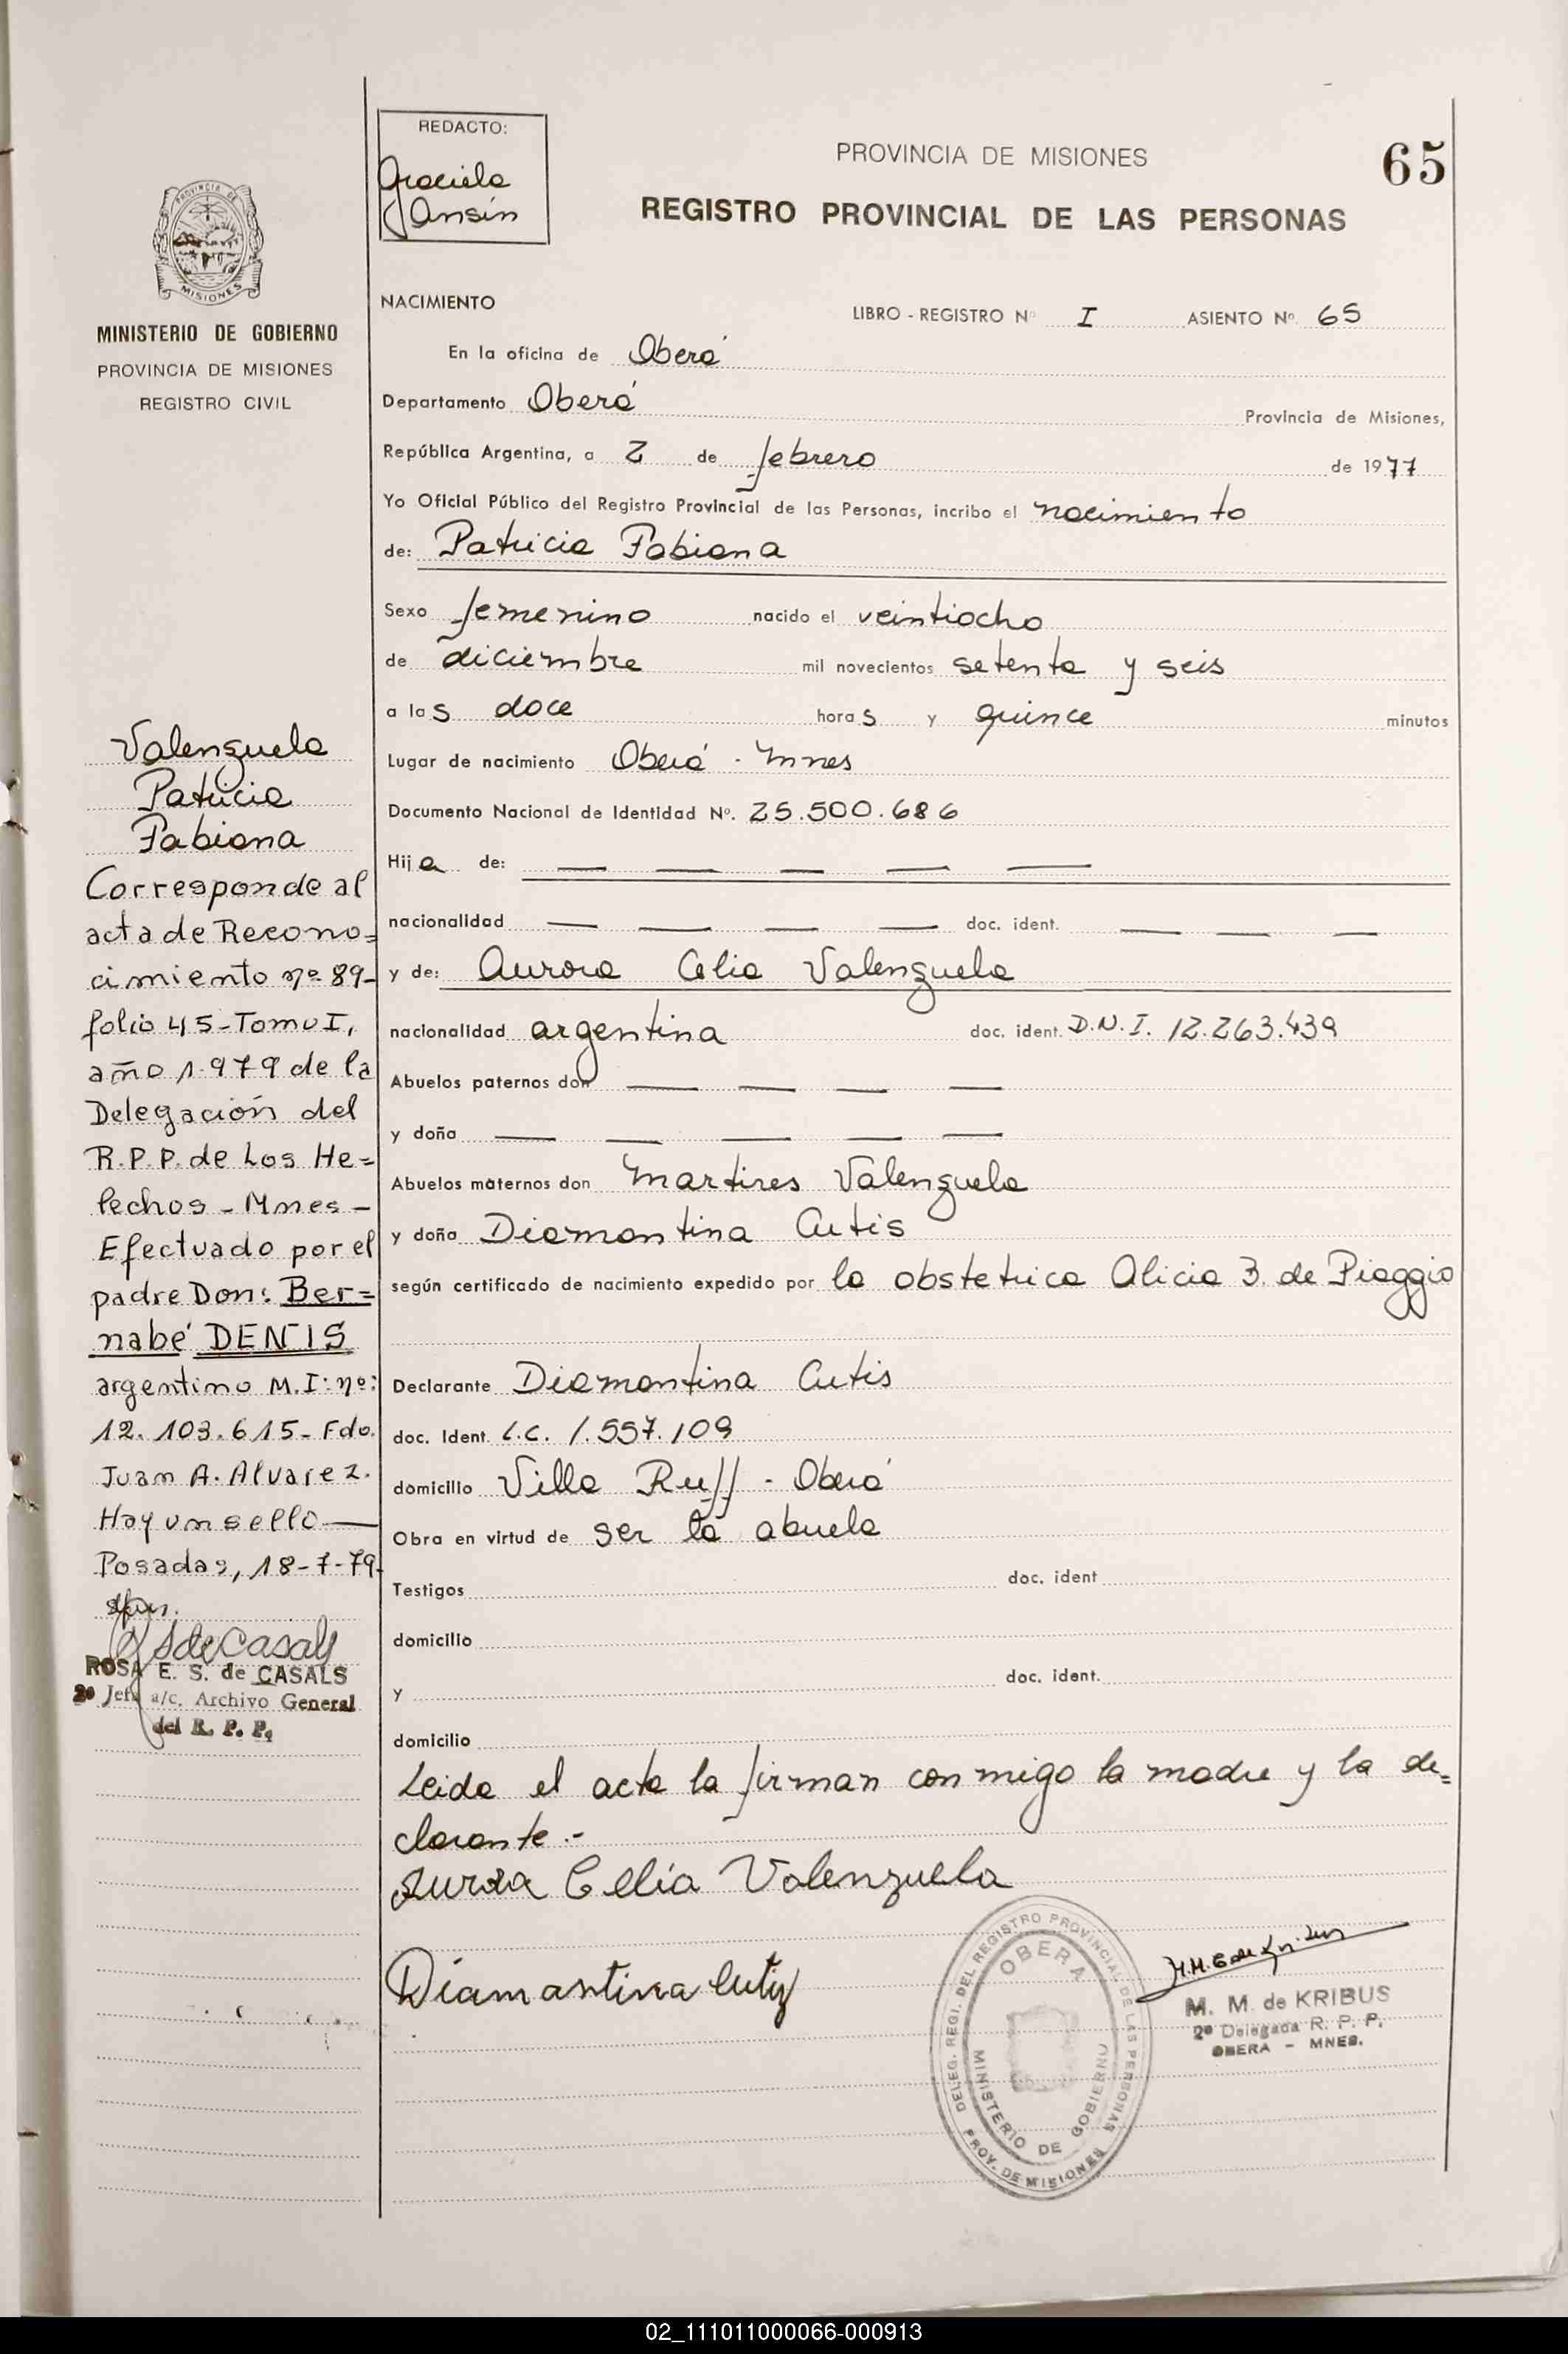 REDACTO:
Graciela
Jansin
PROVINCIA DE MISIONES
65
REGISTRO PROVINCIAL DE LAS PERSONAS
PROVINCIA DE
MISIONES
MINISTERIO DE GOBIERNO
PROVINCIA DE MISIONES
REGISTRO CIVIL
Valenzuela
Patricia
Fabiana
Corresponde al
acta de Recono=
cimiento nº 89-
folio 45-Tomo I,
año 1.979 de la
Delegación del
R.P.P. de Los He=
lechos - Mnes -
Efectuado por el
padre Don: Ber=
nabé DENIS
argentino M.I: nº:
12.103.615- Fdo.
Juan A. Alvarez.
Hay un sello—
Posadas, 18-7-79-
ROSA E. S. de CASALS
2º Jefe a/c. Archivo General
del R. P. P.
NACIMIENTO
LIBRO - REGISTRO Nº I ASIENTO Nº 65
En la oficina de Oberá
Departamento Oberá Provincia de Misiones,
República Argentina, a 2 de febrero de 1977
Yo Oficial Público del Registro Provincial de las Personas, incribo el nacimiento
de: Patricia Fabiana
Sexo femenino nacido el veintiocho
de diciembre mil novecientos setenta y seis
a las doce horas y quince minutos
Lugar de nacimiento Oberá - Mnes
Documento Nacional de Identidad Nº. 25.500.686
Hija de: — — — — —
nacionalidad — — — — doc. ident. — — —
y de: Aurora Celia Valenzuela
nacionalidad argentina doc. ident. D.N.I. 12.263.439
Abuelos paternos don — — — —
y doña — — — — —
Abuelos maternos don Martires Valenzuela
y doña Diamantina Cutis
según certificado de nacimiento expedido por la obstetrica Alicia B. de Piaggio
Declarante Diamantina Cutis
doc. Ident. L.C. 1.557.109
domicilio Villa Ruff - Oberá
Obra en virtud de ser la abuela
Testigos doc. ident
domicilio
y doc. ident.
domicilio
Leida el acta la firman conmigo la madre y la de=
clarante.-
Aurora Celia Valenzuela
Diamantina Cutiz
DELEG. REGI. DEL REGISTRO PROVINCIAL DE LAS PERSONAS
OBERA
MINISTERIO DE GOBIERNO
PROV. DE MISIONES
M. M. de KRIBUS
2ª Delegada R. P. P.
OBERA - MNES.
02_111011000066-000913